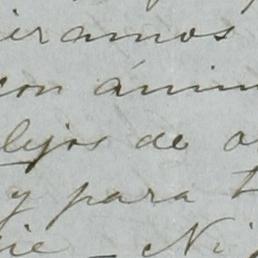 ieramos
con ánim
lejos de o
y para t
ie _ Ni